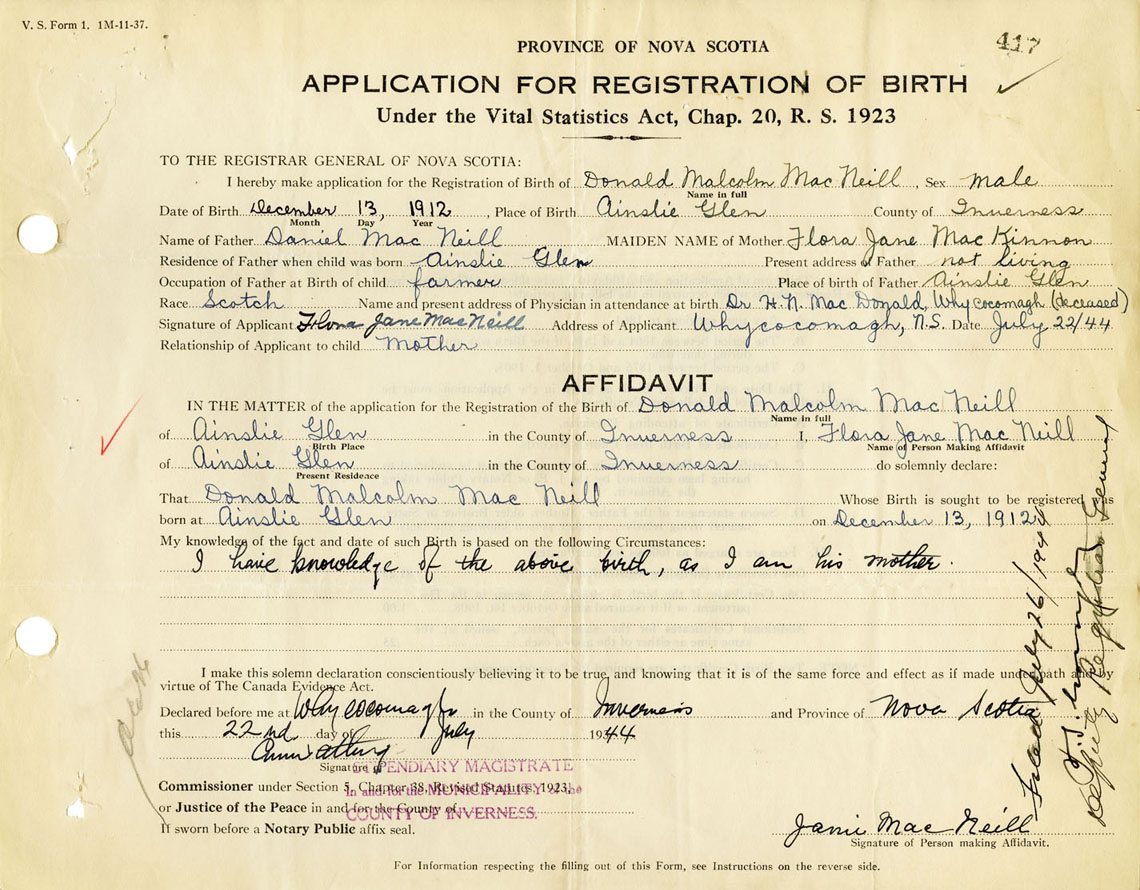 V. S. Form 1. 1M-11-37.
417
PROVINCE OF NOVA SCOTIA
APPLICATION FOR REGISTRATION OF BIRTH
Under the Vital Statistics Act, Chap. 20, R. S. 1923
TO THE REGISTRAR GENERAL OF NOVA SCOTIA:
I hereby make application for the Registration of Birth of Donald Malcolm Mac Neill, Sex male
Name in full
Date of Birth December 13, 1912, Place of Birth Ainslie Glen County of Inverness
Month Day Year
Name of Father Daniel Mac Neill MAIDEN NAME of Mother Flora Jane Mac Kinnon
Residence of Father when child was born Ainslie Glen Present address of Father not living
Occupation of Father at Birth of child farmer Place of birth of Father Ainslie Glen
Race Scotch Name and present address of Physician in attendance at birth Dr H. N. Mac Donald, Whycocomagh (deceased)
Signature of Applicant Flora Jane MacNeill Address of Applicant Whycocomagh, N.S. Date July 22/44
Relationship of Applicant to child Mother
AFFIDAVIT
IN THE MATTER of the application for the Registration of the Birth of Donald Malcolm Mac Neill
Name in full
of Ainslie Glen in the County of Inverness I, Flora Jane Mac Neill
Birth Place Name of Person Making Affidavit
of Ainslie Glen in the County of Inverness do solemnly declare:
Present Residence
That Donald Malcolm Mac Neill Whose Birth is sought to be registered was
born at Ainslie Glen on December 13, 1912
My knowledge of the fact and date of such Birth is based on the following Circumstances:
I have knowledge of the above birth, as I am his mother.
I make this solemn declaration conscientiously believing it to be true, and knowing that it is of the same force and effect as if made under oath and by
virtue of The Canada Evidence Act.
Declared before me at Whycocomagh in the County of Inverness and Province of Nova Scotia
this 22nd day of July 1944
Signature of
STIPENDIARY MAGISTRATE
Commissioner under Section 5, Chapter 38, Revised Statutes, 1923,
In and for the MUNICIPALITY of the
or Justice of the Peace in and for the County of
COUNTY OF INVERNESS.
If sworn before a Notary Public affix seal.
Janie Mac Neill
Signature of Person making Affidavit.
For Information respecting the filling out of this Form, see Instructions on the reverse side.
Filed July 26/1944
Deputy Registrar General